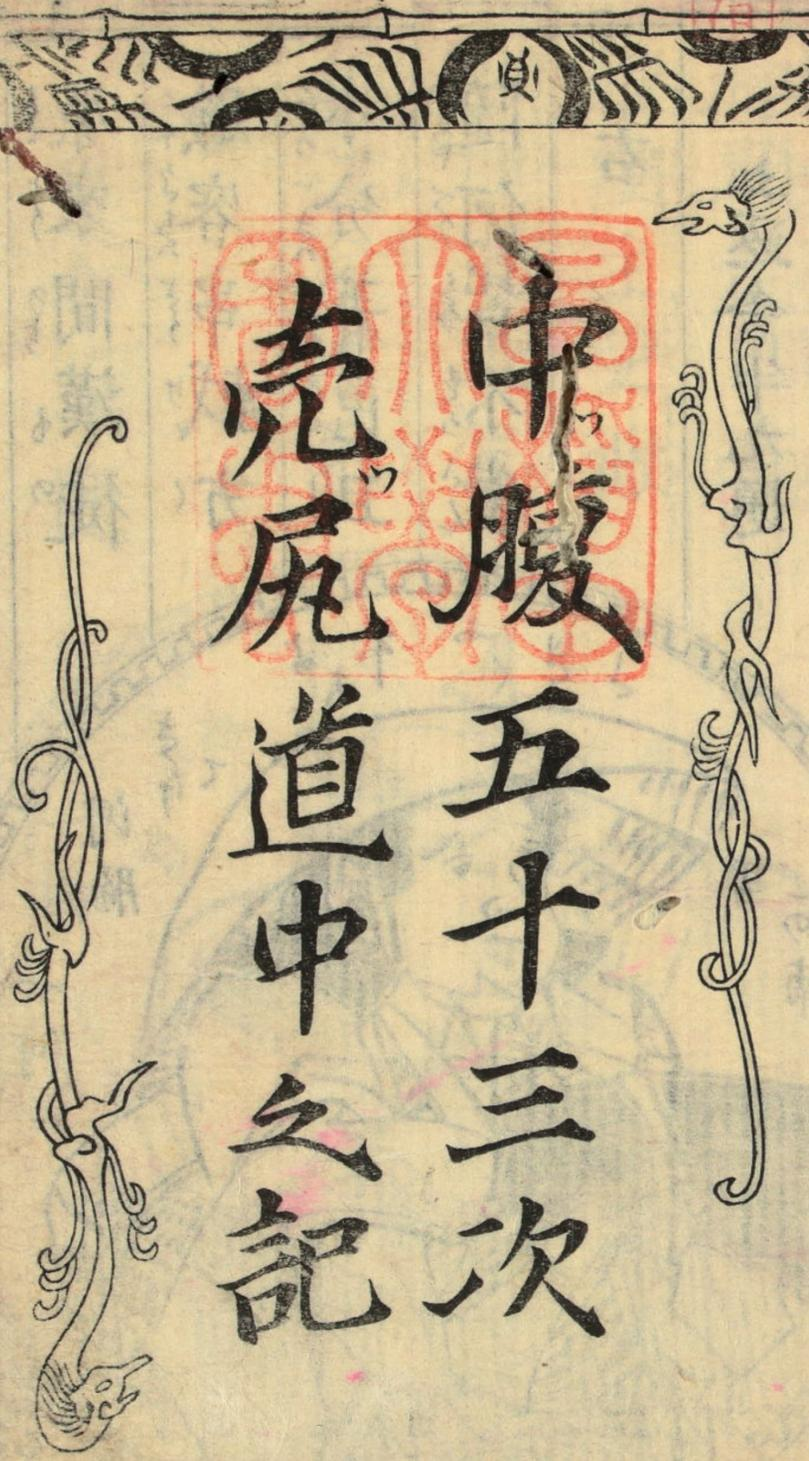 中ッ腹五十三次
売ッ尻道中之記